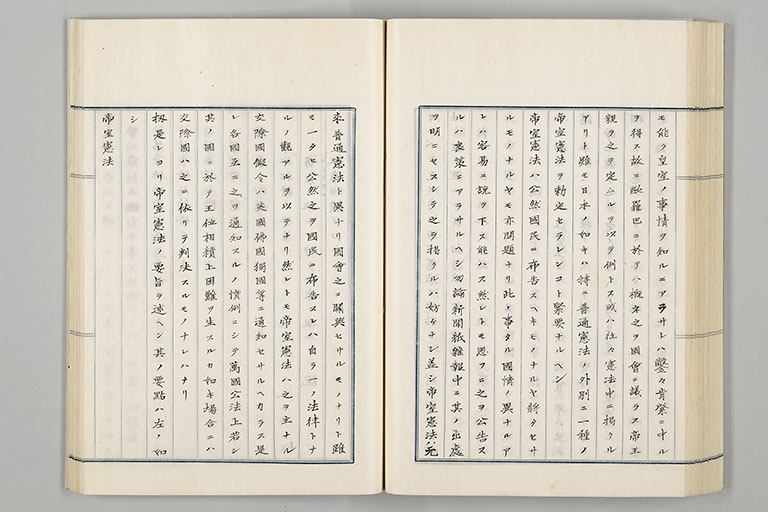 モ能ク皇室ノ事情ヲ知ルニアラサレハ鑿々肯綮ニ中ル
ヲ得ス故ニ歐羅巴ニ於テハ概子之ヲ國會ニ議ラス帝王
親ラ之ヲ定ムルヲ以テ例トス或ハ往々憲法中ニ揭クル
アリト雖モ日本ノ如キハ特ニ普通憲法ノ外別ニ一種ノ
帝室憲法ヲ勅定セラレンコト緊要ナルヘシ
帝室憲法ハ公然國民ニ布告スヘキモノナルヤ將タセサ
ルモノナルヤモ亦問題ナリ此ノ事タル國情ノ異ナルア
レハ容易ニ說ヲ下ス能ハス然レトモ思フニ之ヲ公告ス
ルハ良策ニアラサルヘシ勿論新聞紙雜報中ニ其ノ出處
ヲ明ニセスシテ之ヲ揭クルハ妨ケナシ蓋シ帝室憲法ハ元
來普通憲法ト異ナリ國會之ニ關與セサルモノナリト雖
モ一タヒ公然之ヲ國民ニ布告スレハ自ラ一ノ法律トナ
ルノ觀アルヲ以テナリ然レトモ帝室憲法ハ之ヲ主ナル
交際國假令ハ英國佛國獨國等ニ通知セサルヘカラス是
レ各國互ニ之ヲ通知スルノ慣例ニシテ萬國公法上若シ
其ノ國ニ於テ王位相續上困難ヲ生スルカ如キ場合ニハ
交際國ハ之ニ依リテ判決スルモノナレハナリ
扨是レヨリ帝室憲法ノ要旨ヲ述ヘン其ノ要點ハ左ノ如
シ
帝室憲法